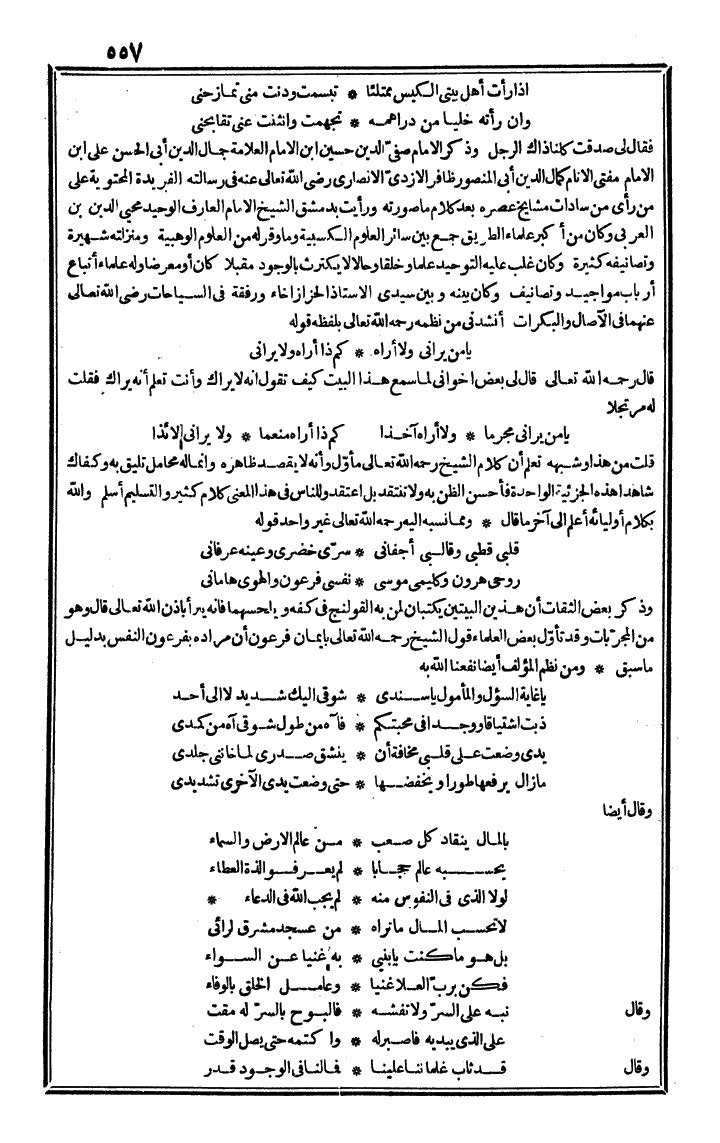 ٥٥٧
اذا رأت أهل بيتى الكيس ممتلئا * تبسمت ودنت منى تمازحنى
وان رأته خليا من دراهمه * تجهمت وانثنت عنى تقابحنى
فقال لى صدقت كلنا ذاك الرجل وذكر الامام صفى الدين حسين ابن الامام العلامة جمال الدين أبى الحسن على ابن
الامام مفتى الانام كمال الدين أبى المنصور ظافر الازدى الانصارى رضى الله تعالى عنه فى رسالته الفريدة المحتوية على
من رأى من سادات مشايخ عصره بعد كلام ما صورته ورأيت بدمشق الشيخ الامام العارف الوحيد محيى الدين بن
العربى وكان من أكبر علماء الطريق جمع بين سائر العلوم الكسبية وما وقر له من العلوم الوهبية ومنزلته شهيرة
وتصانيفه كثيرة وكان غلب عليه التوحيد علما وخلقا وحالا لا يكترث بالوجود مقبلا كان أو معرضا وله علماء أتباع
أرباب مواجيد وتصانيف وكان بينه وبين سيدى الاستاذ الحزاز اخاء ورفقة فى السياحات رضى الله تعالى
عنهما فى الآصال والبكرات أنشدنى من نظمه رحمه الله تعالى بلفظه قوله
يا من يرانى ولا أراه * كم ذا أراه ولا يرانى
قال رحمه الله تعالى قال لى بعض اخوانى لما سمع هذا البيت كيف تقول انه لا يراك وأنت تعلم أنه يراك فقلت
له مرتجلا
يا من يرانى مجرما * ولا أراه آخذا كم ذا أراه منعما * ولا يرانى لائذا
قلت من هذا وشبهه تعلم أن كلام الشيخ رحمه الله تعالى مأول وأنه لا يقصد ظاهره وانما له محامل تليق به وكفاك
شاهدا هذه الجزئية الواحدة فأحسن الظن به ولا تنتقد بل اعتقد وللناس فى هذا المعنى كلام كثير والتسليم أسلم والله
بكلام أوليائه أعلم الى آخر ما قال * ومما نسبه اليه رحمه الله تعالى غير واحد قوله
قلبى قطبى وقالبى أجفانى * سرّى خضرى وعينه عرفانى
روحى هرون وكليمى موسى * نفسى فرعون والهوى هامانى
وذكر بعض الثقات أن هذين البيتين يكتبان لمن به القولنج فى كفه ويلحسهما فانه يبرأ باذن الله تعالى قال وهو
من المجرّبات وقد تأوّل بعض العلماء قول الشيخ رحمه الله تعالى بايمان فرعون أن مراده بفرعون النفس بدليل
ما سبق * ومن نظم المؤلف أيضا نفعنا الله به
يا غاية السؤل والمأمول يا سندى * شوقى اليك شديد لا الى أحد
ذبت اشتياقا ووجدا فى محبتكم * فآه من طول شوقى آه من كمدى
يدى وضعت على قلبى مخافة أن * ينشق صدرى لما خاننى جلدى
ما زال يرفعها طورا ويخفضها * حتى وضعت يدى الآخرى تشد يدى
وقال أيضا
بالمال ينقاد كل صعب * من عالم الارض والسماء
يحسبه عالم حجابا * لم يعرفوا لذة العطاء
لولا الذى فى النفوس منه * لم يجب الله فى الدعاء *
لا تحسب المال ما تراه * من عسجد مشرق لرائى
بل هو ما كنت يا بنى * به غنيا عن السواء
فكن برب العلا غنيا * وعامل الخلق بالوفاء
وقال نبه على السرّ ولا تفشه * فالبوح بالسرّ له مقت
على الذى يبديه فاصبر له * واكتمه حتى يصل الوقت
وقال قد ثاب غلماننا علينا * فمالنا فى الوجود قدر